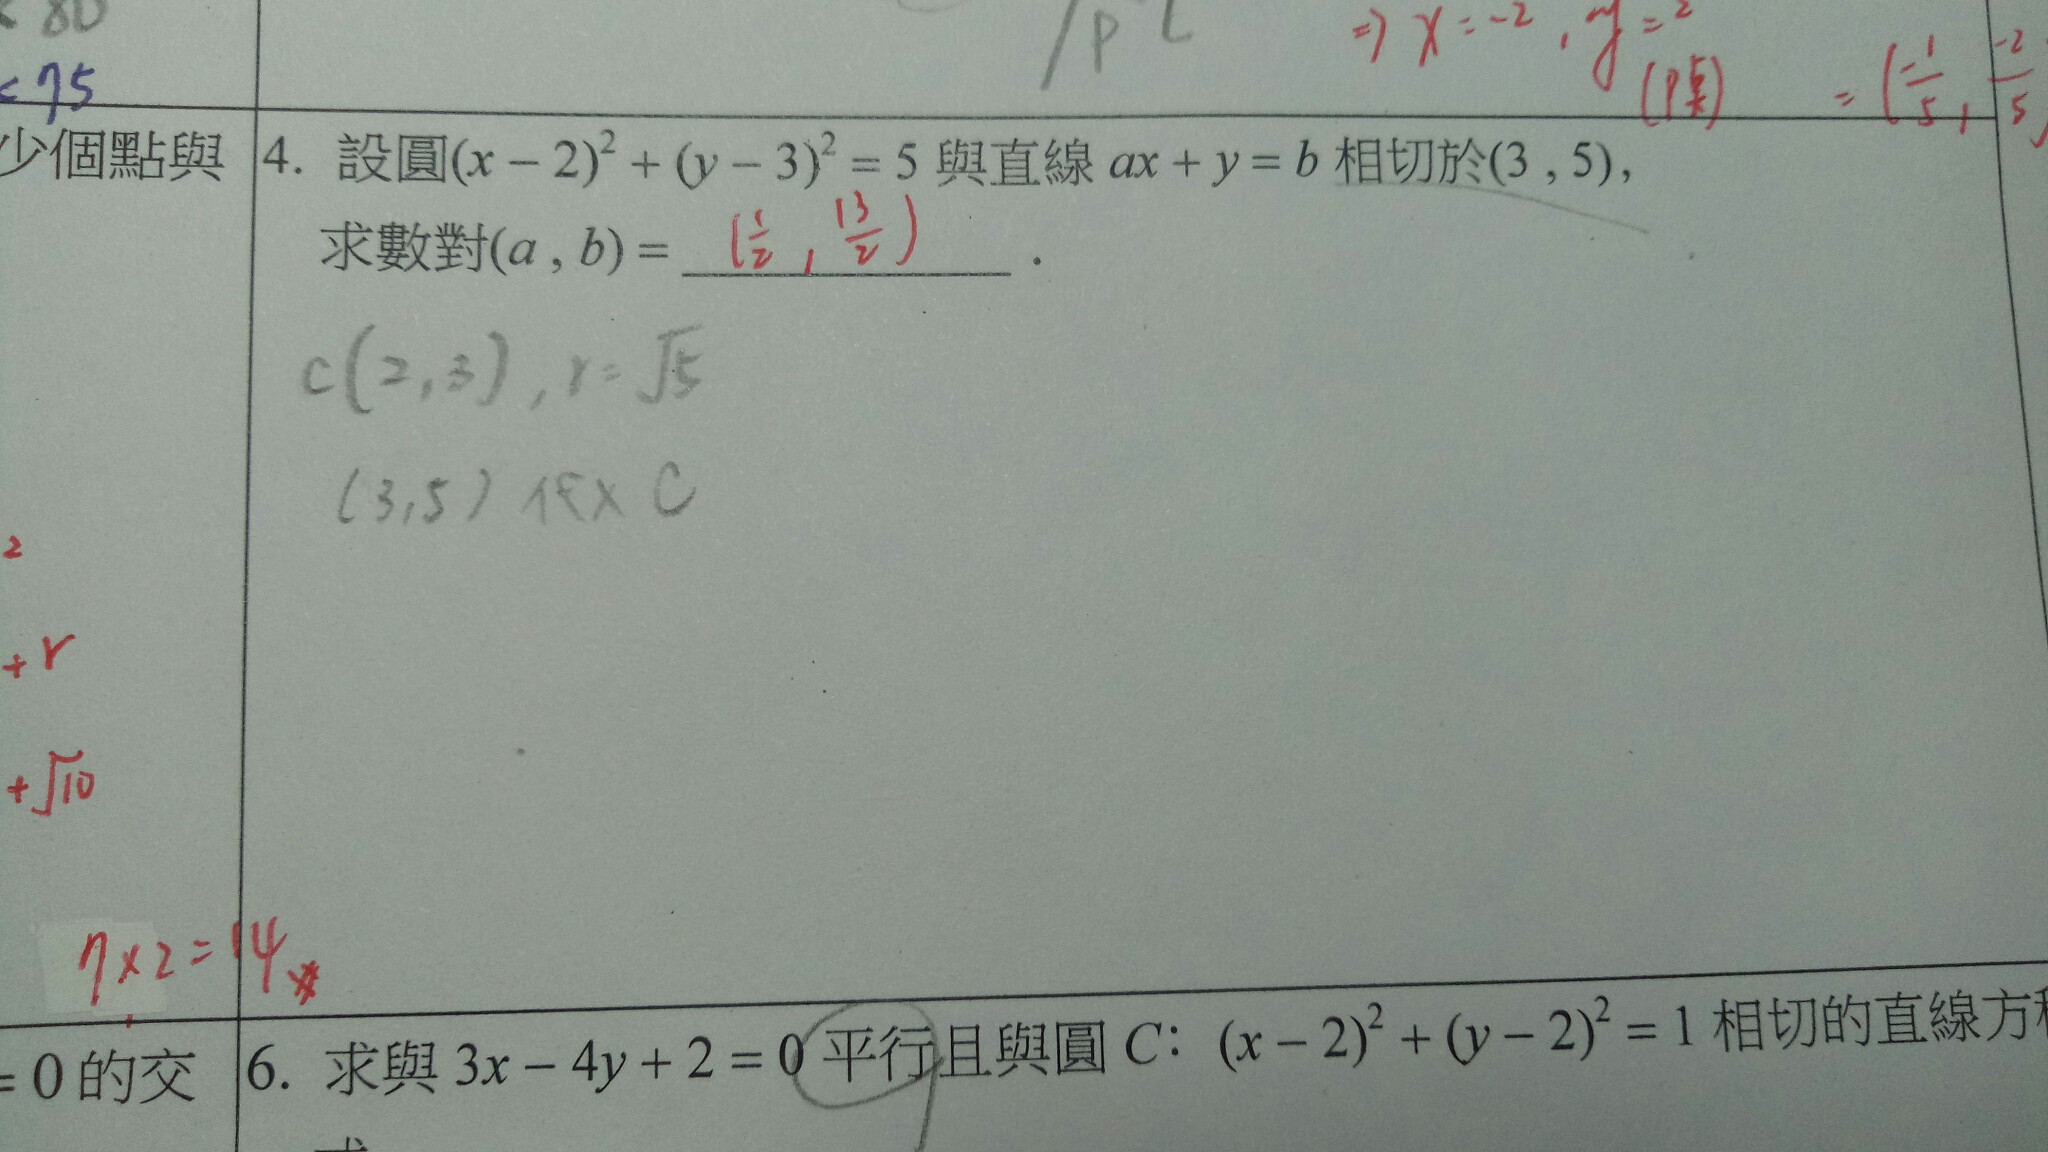 < 80
< 75
/ P L
⇒ x = -2 , y = 2
(P點)
= (-1/5 , -2/5)
少個點與
4. 設圓(x − 2)² + (y − 3)² = 5 與直線 ax + y = b 相切於(3 , 5),
求數對(a , b) = (1/2 , 13/2) .
C(2,3) , r = √5
(3,5) 代入 C
2
+ r
+ √10
7 × 2 = 14
= 0 的交
6. 求與 3x − 4y + 2 = 0 平行且與圓 C: (x − 2)² + (y − 2)² = 1 相切的直線方